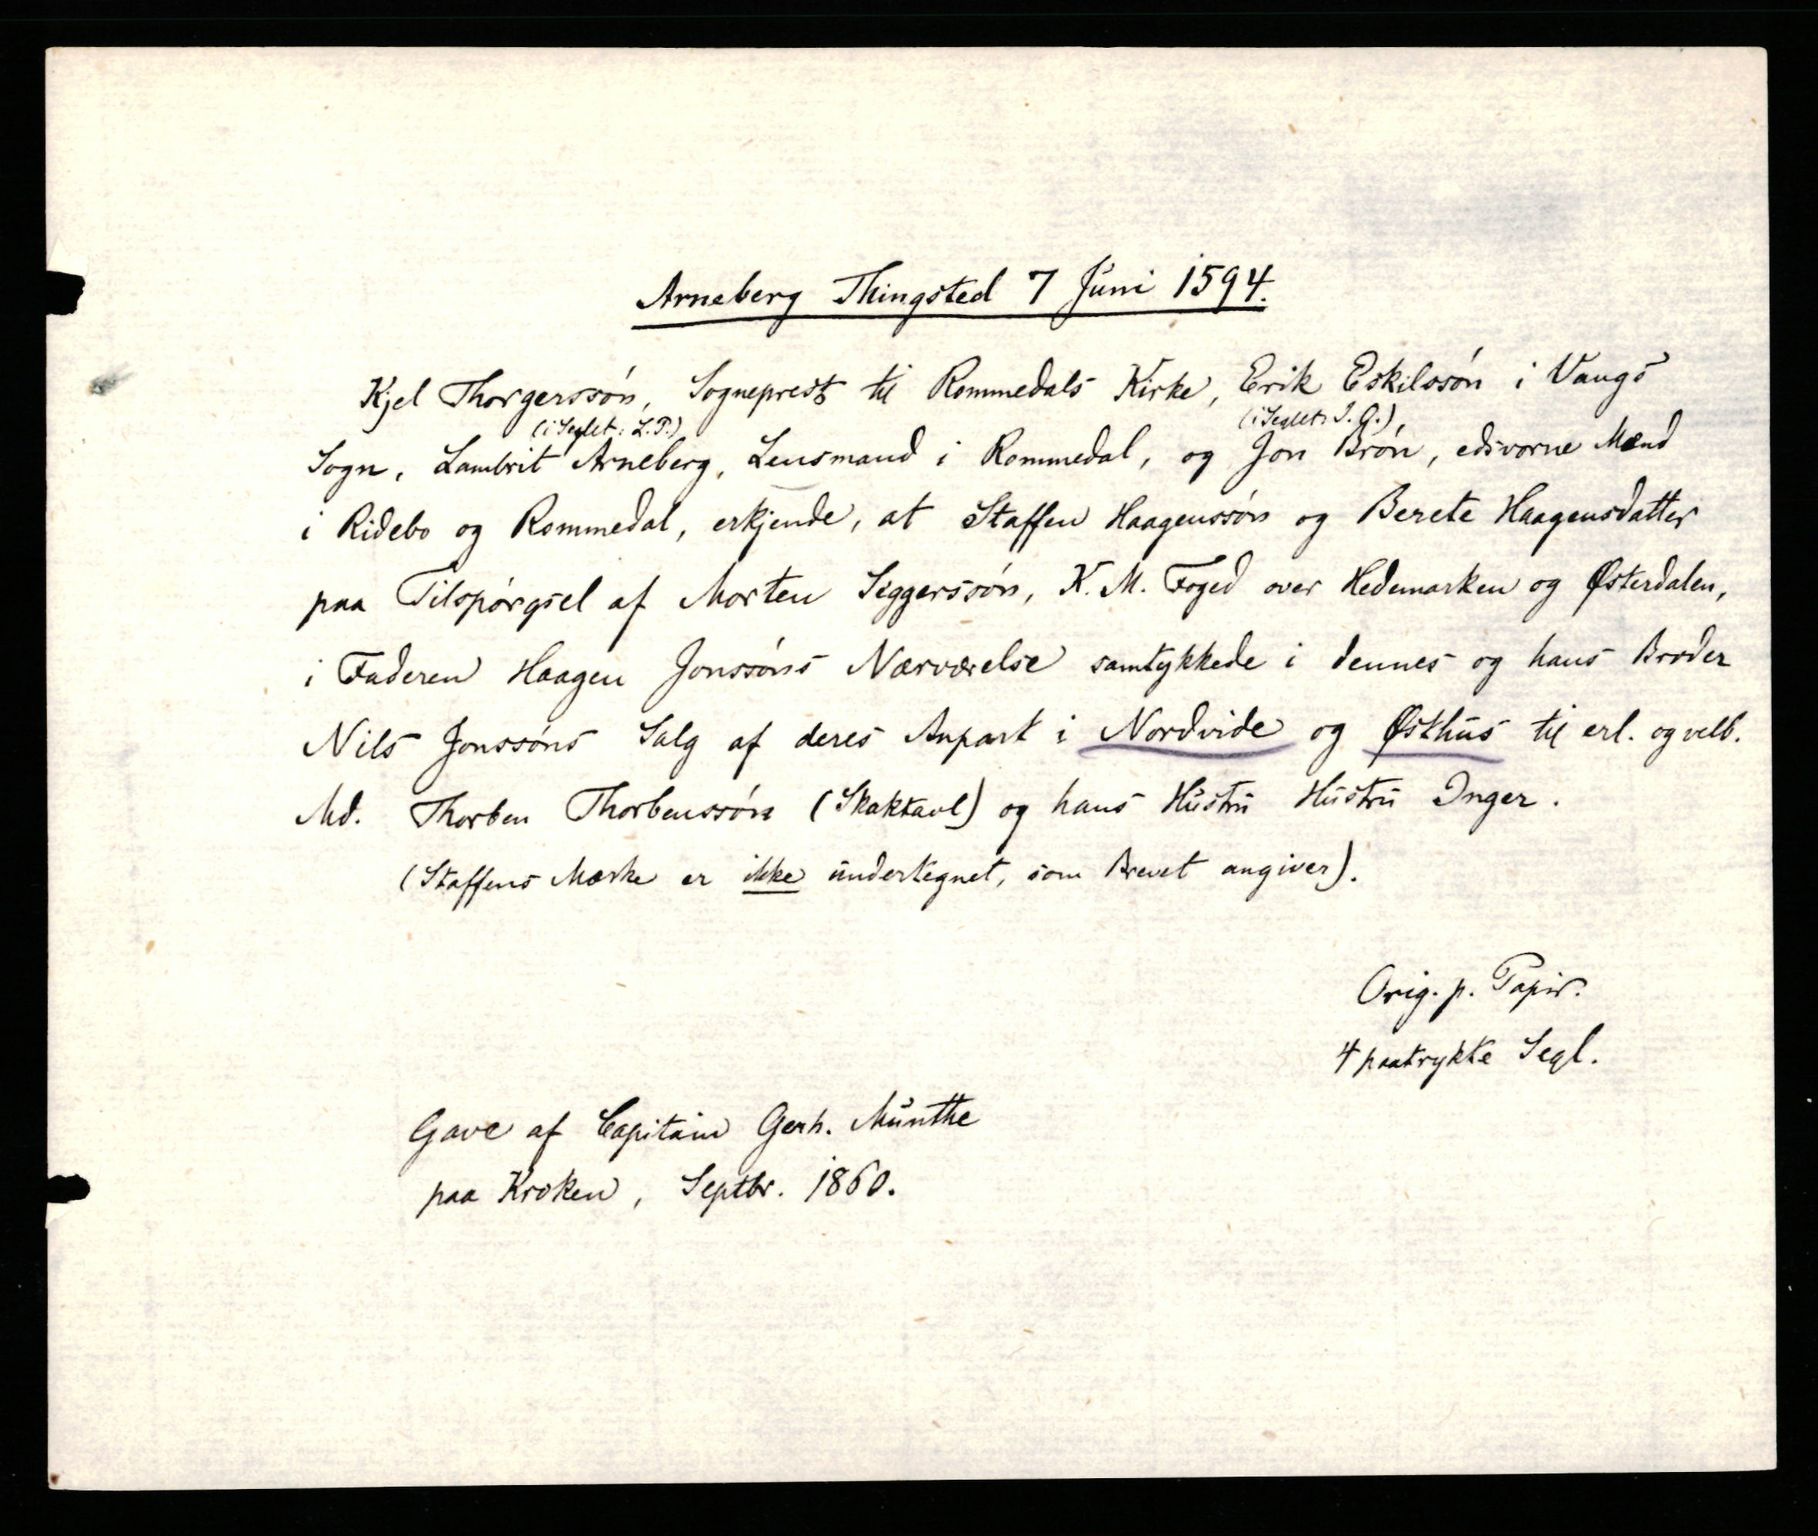 Arneberg Thingsted 7 Juni 1594.
Kjel Thorgerssøn, Sogneprest til Rommedals Kirke, Erik Eskilssøn i Vangs
(i Seglet: L.P.) (i Seglet: I.G.),
Sogn, Lambrit Arneberg, Lensmand i Rommedal, og Jon Brøn, edsvorne Mænd
i Ridebo og Rommedal, erkjende, at Staffen Haagenssøn og Berete Haagensdatter
paa Tilspørgsel af Morten Seggerssøn, K. M. Foged over Hedemarken og Østerdalen,
i Faderen Haagen Jonssøns Nærværelse samtykkede i dennes og hans Broder
Nils Jonssøns Salg af deres Anpart i Nordvide og Østhus til erl. og velb.
Md. Thorben Thorbenssøn (Skaktavl) og hans Hustru Hustru Inger.
(Staffens Mærke er ikke undertegnet, som Brevet angiver).
Orig. p. Papir.
4 paatrykte Segl.
Gave af Capitain Gerh. Munthe
paa Kroken, Septbr. 1860.